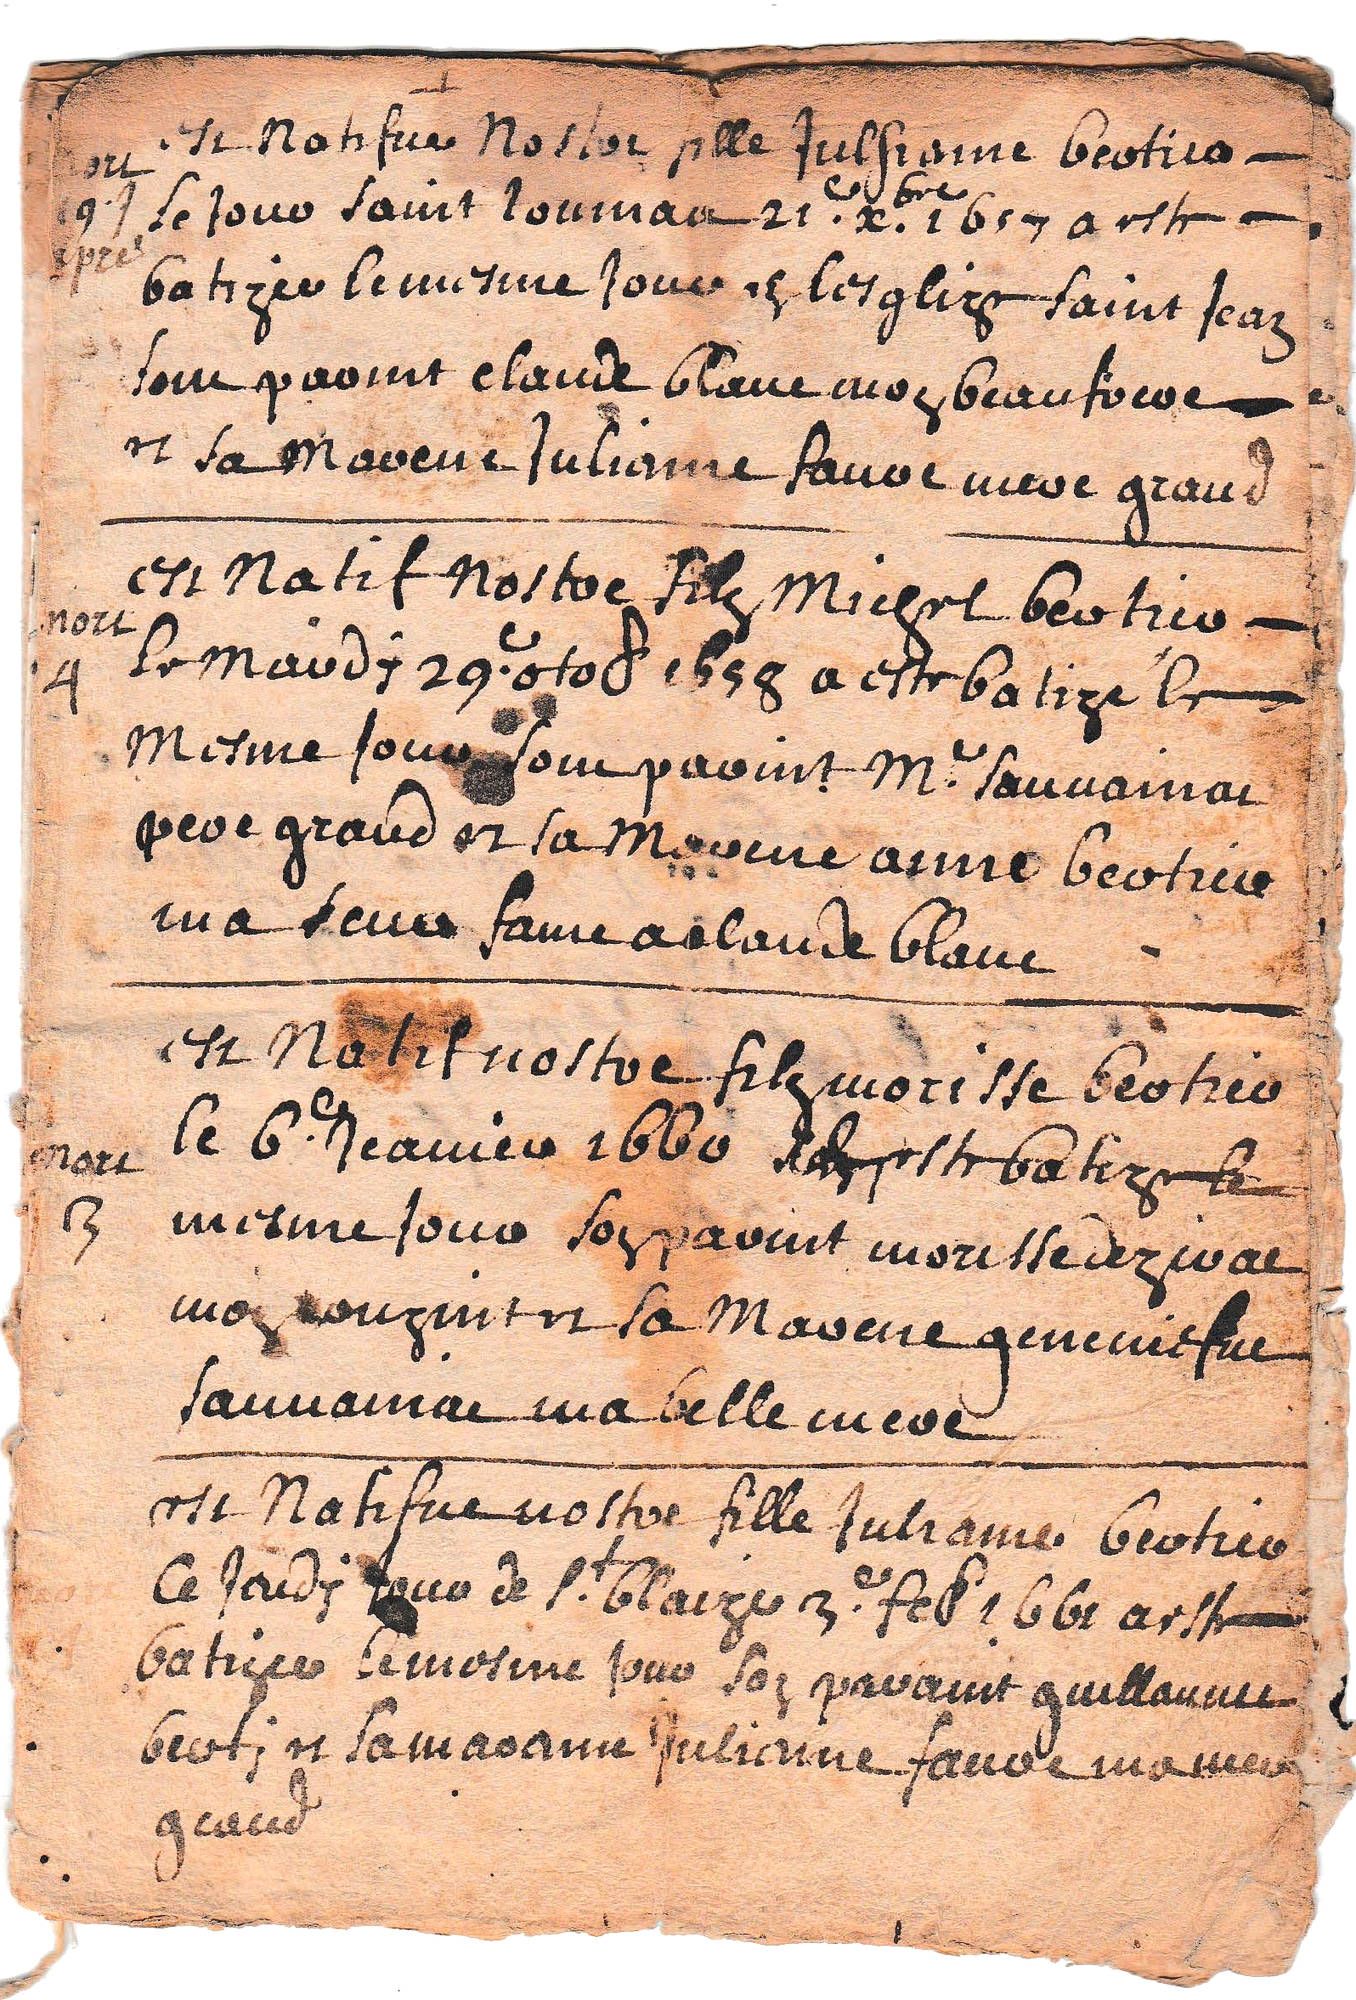 est Natifue Nostre fille Julhiane bertier
mort
le Jour saint Toumas 21.e x.bre 1657 a estre
9 J
apres
batizee le mesme Jour en lesglize saint Jean
sont parint Claude blanc mon beaufrere
et sa Marene Juliane faure mere grand
est Natif Nostre filz Michel bertier
mort
4
le Mardy 29.e Otob 1658 a estre batizé le
Mesme Jour sont parint M.e sauvaniac
pere grand et sa Marene anne bertier
ma seur fame a claude blanc
est Natif nostre filz morisse bertier
mort
le 6.e Jeanier 1660 estre batize le
3
mesme Jour son parint morisse
mon couzint et sa Marene geneviefue
sauvaniac ma belle mere
est Natifue nostre fille Juliane bertier
le Jeudy Jour de s.t blaize 3.e feb 1661 a estre
batizee le mesme Jour son parant guillaume
berty et sa marane Juliane faure ma mere
grand